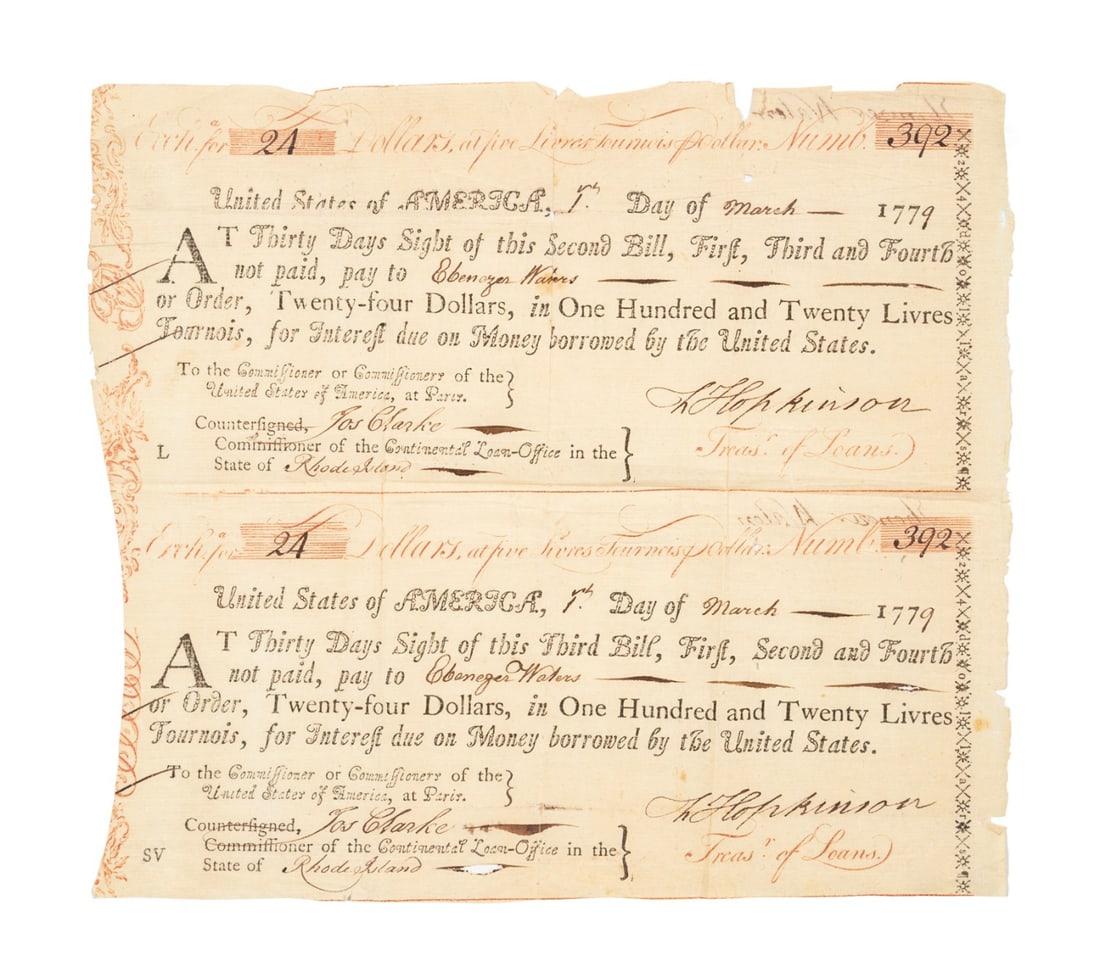 Exchᵃ. for 24 Dollars, at five Livres Tournois ꝑ Dollar: Numb. 392
United States of AMERICA, 1ˢᵗ. Day of March 1779
AT Thirty Days Sight of this Second Bill, Firſt, Third and Fourth
not paid, pay to Ebenezer Waters
or Order, Twenty-four Dollars, in One Hundred and Twenty Livres
Tournois, for Intereſt due on Money borrowed by the United States.
To the Commiſſioner or Commiſſioners of the
United States of America, at Paris.
F Hopkinson
Treasʳ. of Loans.
Counterſigned, Jos Clarke
L
Commiſſioner of the Continental Loan-Office in the
State of Rhode Island
Exchᵃ. for 24 Dollars, at five Livres Tournois ꝑ Dollar: Numb. 392
United States of AMERICA, 1ˢᵗ. Day of March 1779
AT Thirty Days Sight of this Third Bill, Firſt, Second and Fourth
not paid, pay to Ebenezer Waters
or Order, Twenty-four Dollars, in One Hundred and Twenty Livres
Tournois, for Intereſt due on Money borrowed by the United States.
To the Commiſſioner or Commiſſioners of the
United States of America, at Paris.
F Hopkinson
Treasʳ. of Loans.
Counterſigned, Jos Clarke
SV
Commiſſioner of the Continental Loan-Office in the
State of Rhode Island